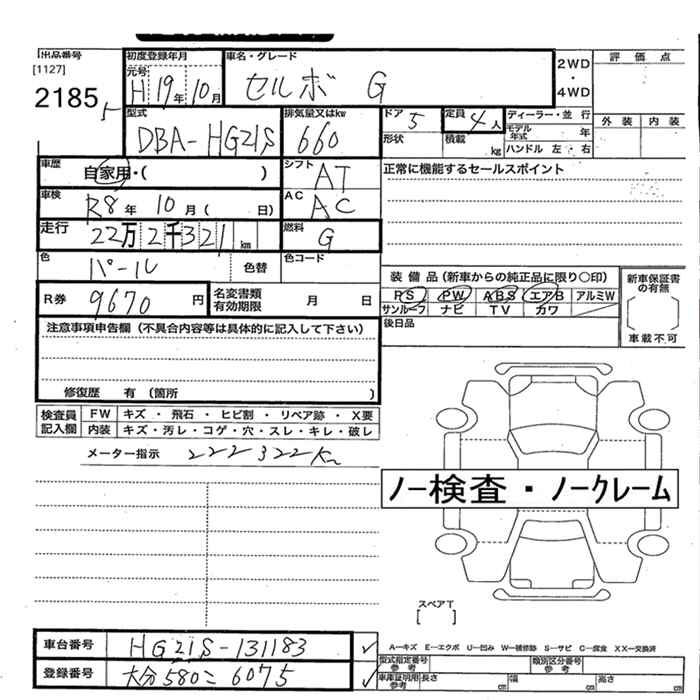 出品番号
[1127]
2185
初度登録年月
元号
H 19年 10月
車名・グレード
セルボ G
2WD
・
4WD
評価点
外装 内装
型式
DBA-HG21S
排気量又はkw
660
ドア 5
形状
定員 4人
積載 kg
ディーラー・並行
モデル年式 年
ハンドル 左・右
車歴
自家用・( )
シフト
AT
正常に機能するセールスポイント
車検
R8年 10月( 日)
AC
AC
走行
22万2千321km
燃料
G
色
パール
色替
色コード
装備品(新車からの純正品に限り○印)
PS PW ABS エアB アルミW
サンルーフ ナビ TV カワ
後日品
新車保証書の有無
車載不可
R券 9670円
名変書類有効期限 月 日
注意事項申告欄(不具合内容等は具体的に記入して下さい)
修復歴 有(箇所 )
検査員記入欄
FW キズ・飛石・ヒビ割・リペア跡・X要
内装 キズ・汚レ・コゲ・穴・スレ・キレ・破レ
メーター指示 222322Km
ノー検査・ノークレーム
スペアT
[ ]
車台番号 HG21S-131183
登録番号 大分580こ6075
A−キズ E−エクボ U−凹み W−補修跡 S−サビ C−腐食 XX−交換済
型式指定番号参考
類別区分番号参考
車庫証明用参考 長さ cm 幅 cm 高さ cm